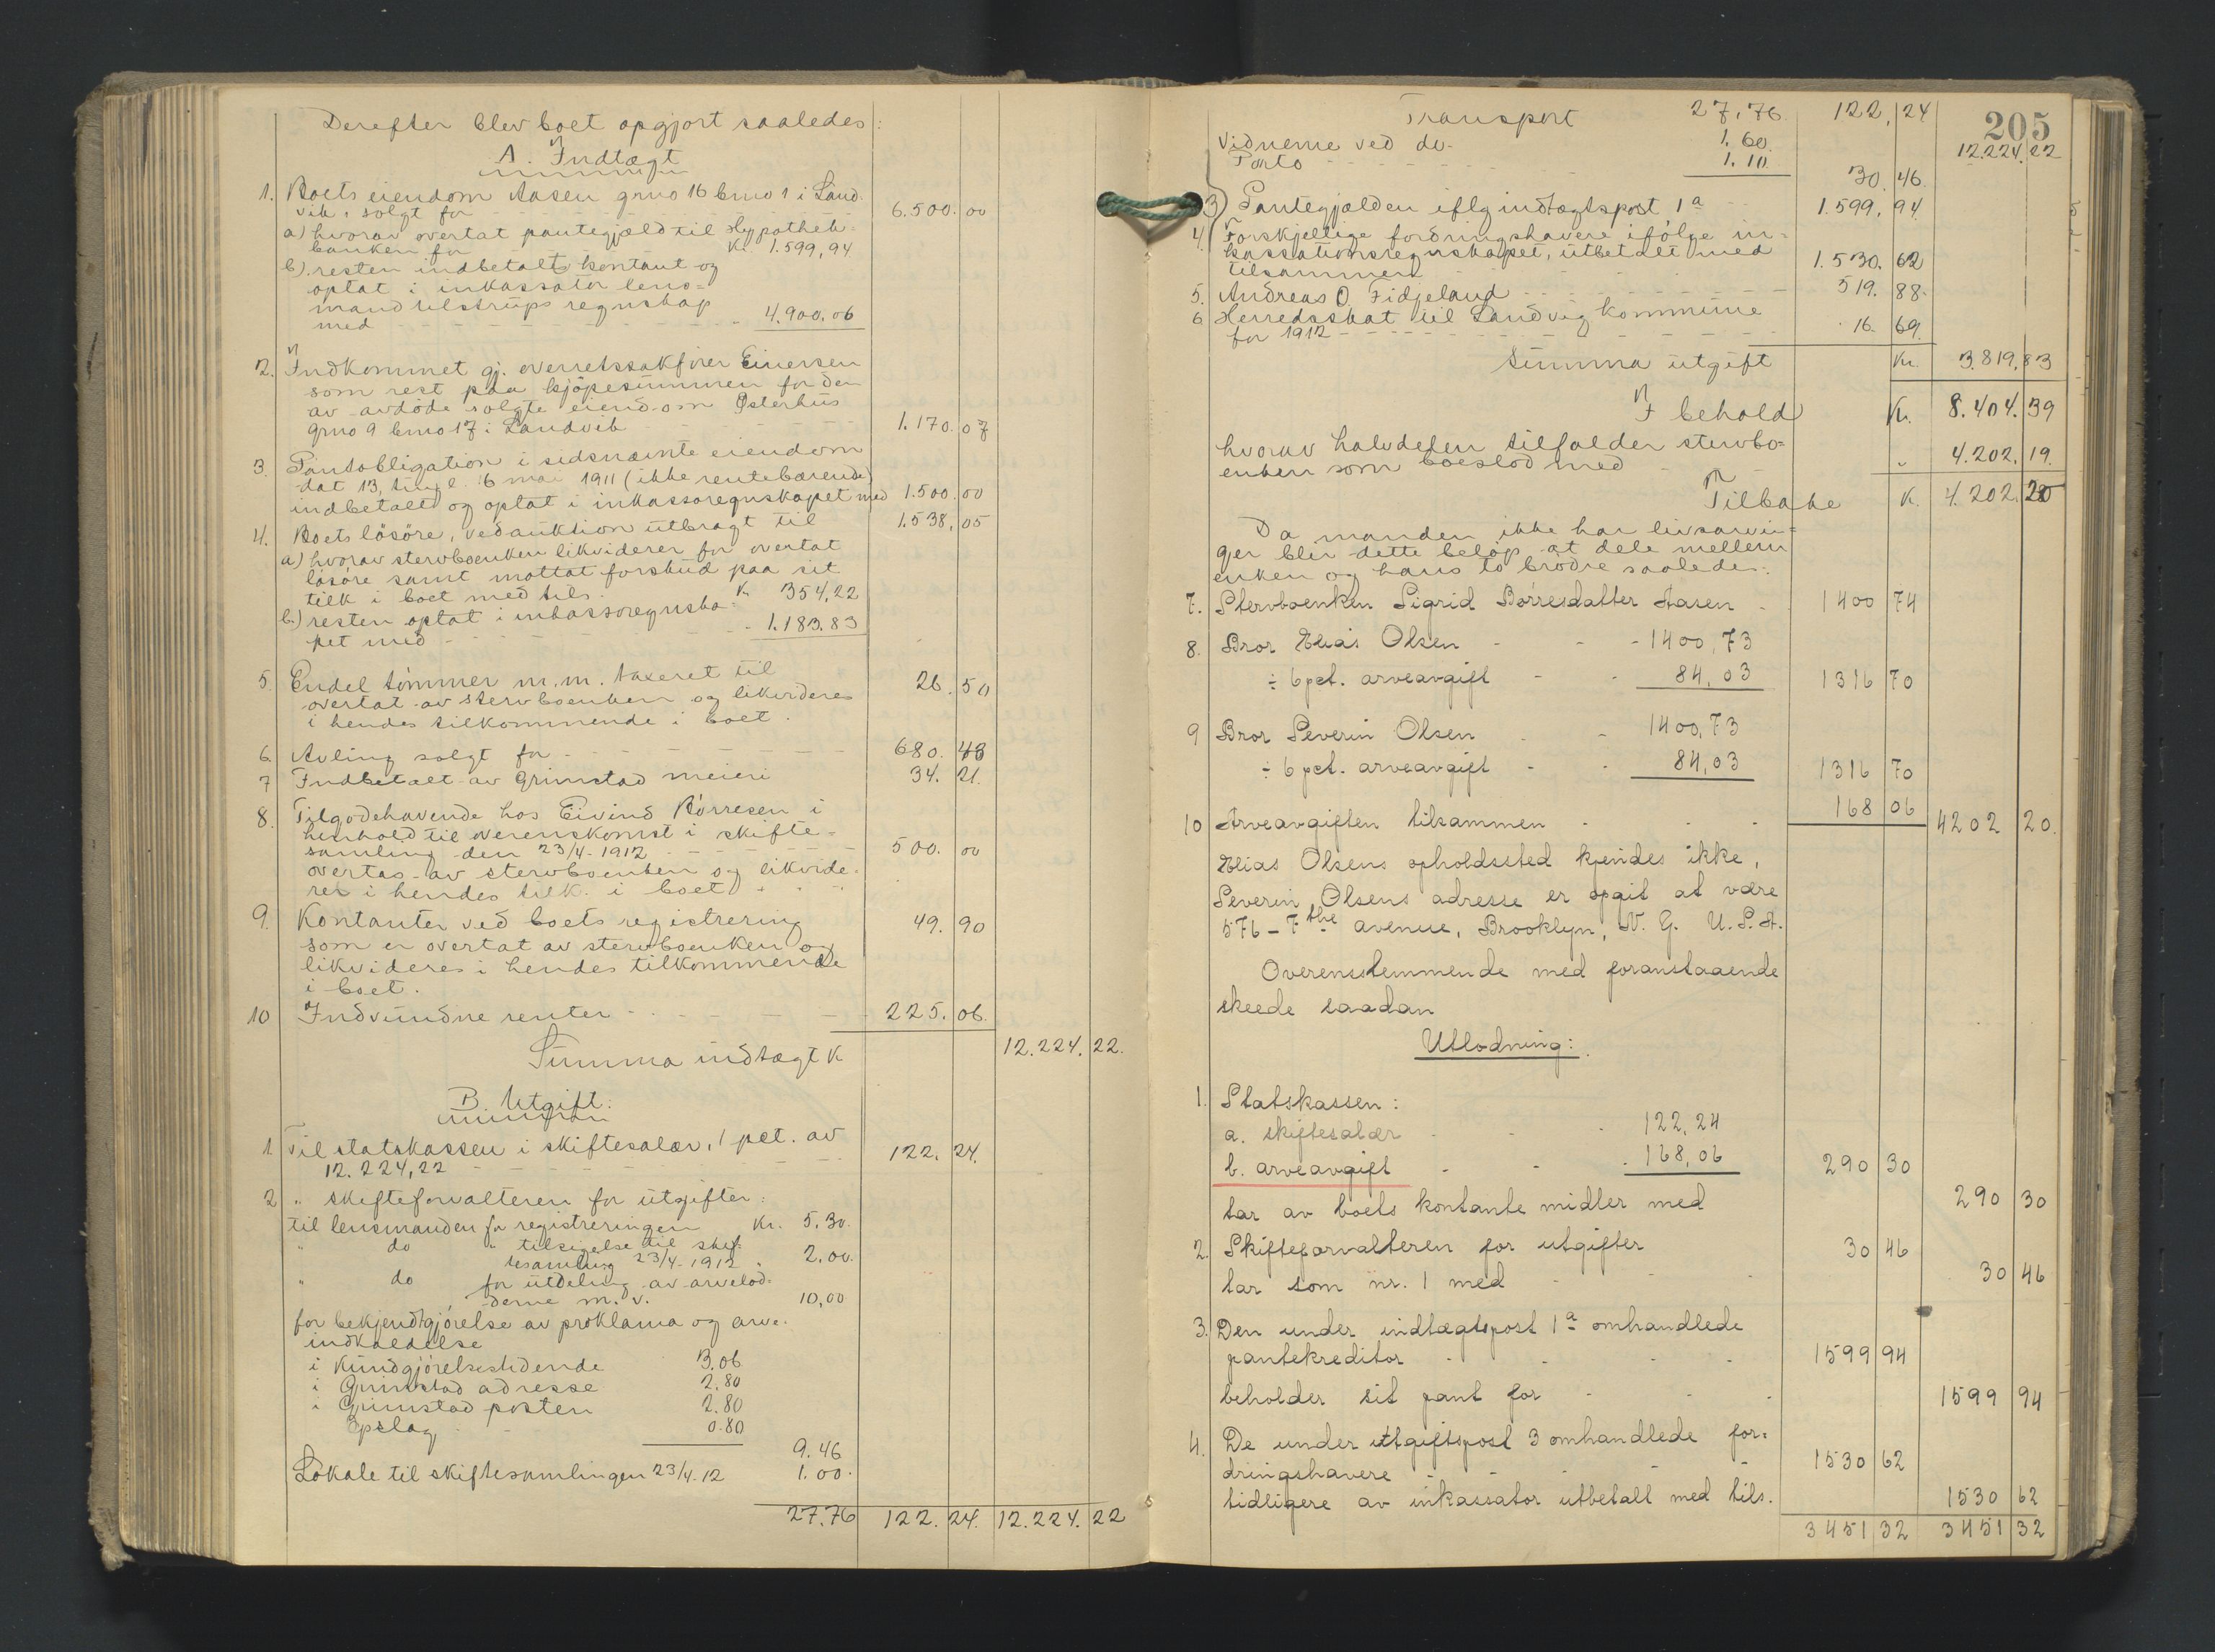 Derefter blev boet opgjort saaledes:
A. Indtægt
1. Boets eiendom Aasen grno 16 brno 1 i Land-
vik, solgt for - - - 6.500.00
a) hvorav overtat pantegjæld til Hypothek-
banken for Kr. 1.599,94
b) resten indbetalt kontant og
optat i inkassator lens=
mand Ulstrups regnskap
med - - - 4.900.06
2. Indkommet gj. overretssakfører Einersen
som rest paa kjöpesummen for den
av avdöde solgte eiendom Østerhus
grno 9 brno 17 i Landvik - - - 1.170.07
3. Pantobligation i sidsnævnte eiendom
dat 13, tingl. 16 mai 1911 (ikke rentebærende)
indbetalt og optat i inkassoregnskapet med 1.500.00
4. Boets lösöre, ved auktion utbragt til 1.538.05
a) hvorav stervboenken likviderer for overtat
lösöre samt mottat forskud paa sit
tilk i boet med tils. K. 354,22
b.) resten optat i inkassoregnska-
pet med - - - 1.183.83
5. Endel tömmer m.m. taxeret til 26.50
overtat av stervboenken og likvideres
i hendes tilkommende i boet.
6. Avling solgt for - - - 680.43
7 Indbetalt av Grimstad meieri 34.21.
8. Tilgodehavende hos Eivind Börresen i
henhold til overenskomst i skifte-
samling den 23/4-1912 - - - 500.00
overtas av stervboenken og likvide-
rer i hendes tilk. i boet
9. Kontanter ved boets registrering 49.90
som er overtat av stervboenken og
likvideres i hendes tilkommende
i boet.
10 Indvundne renter - - - 225.06.
Summa indtægt K 12.224.22.
B. Utgift:
1 Til statskassen i skiftesalær, 1 pct. av 122.24.
12.224,22 - - -
2 " skifteforvalteren for utgifter:
til lensmanden for registreringen Kr. 5.30.
" do " tilsigelse til skif-
tesamling 23/4-1912 " 2.00.
" do for utdeling av arvelod-
derne m.v. 10,00
for bekjendtgjörelse av proklama og arve-
indkaldelse
i Kundgjörelsestidende 3.06
i Grimstad adresse 2.80
i Grimstad posten 2.80
Opslag 0.80
9.46
Lokale til skiftesamlingen 23/4.12 1.00.
27.76 122.24. 12.224.22
Transport 27,76. 122,24
205
Vidnerne ved do- 1.60. 12.224.22
Porto - - - 1.10 30.46.
3) Pantegjælden iflg indtægtspost 1a 1.599,94
4. Forskjellige fordringshavere ifölge in-
kassationsregnskapet, utbetalt med
tilsammen - - - 1.530.62
5. Andreas O. Fidjeland - - - 519.88.
6 Herredsskat til Landvig kommune
for 1912 - - - 16.69.
Summa utgift Kr. 3.819,83
I behold Kr. 8.404.39
hvorav halvdelen tilfalder stervbo-
enken som boeslod med - " 4.202.19.
Tilbake K. 4.202.20
Da manden ikke har livsarvin-
ger blir dette belöp at dele mellem
enken og hans to brödre saaledes:
7. Stervboenken Sigrid Børresdatter Aasen - 1400 74
8. Bror Elias Olsen - - - 1400,73
÷ 6 pct. arveavgift - - 84,03 1316 70
9 Bror Severin Olsen - - 1400,73
÷ 6 pct. arveavgift - - 84,03 1316 70
10 Arveavgiften tilsammen - - - 168 06 4202 20.
Elias Olsens opholdssted kjendes ikke,
Severin Olsens adresse er opgit at være
576 - 7 the avenue, Brooklyn, N. Y. U. S. A.
Overensstemmende med foranstaaende
skeede saadan
Utlodning:
1. Statskassen:
a. skiftesalær - - - 122,24
b. arveavgift - - - 168,06 290 30
tar av boets kontante midler med 290 30
2. Skifteforvalteren for utgifter 30 46
tar som nr. 1 med - - - 30 46
3. Den under indtægtspost 1a omhandlede
pantekreditor - - - 1599 94
beholder sit pant for - - - 1599 94
4. De under utgiftspost 3 omhandlede for-
dringshavere - - - 1530 62
tidligere av inkassator utbetalt med tils. 1530 62
3451 32 3451 32